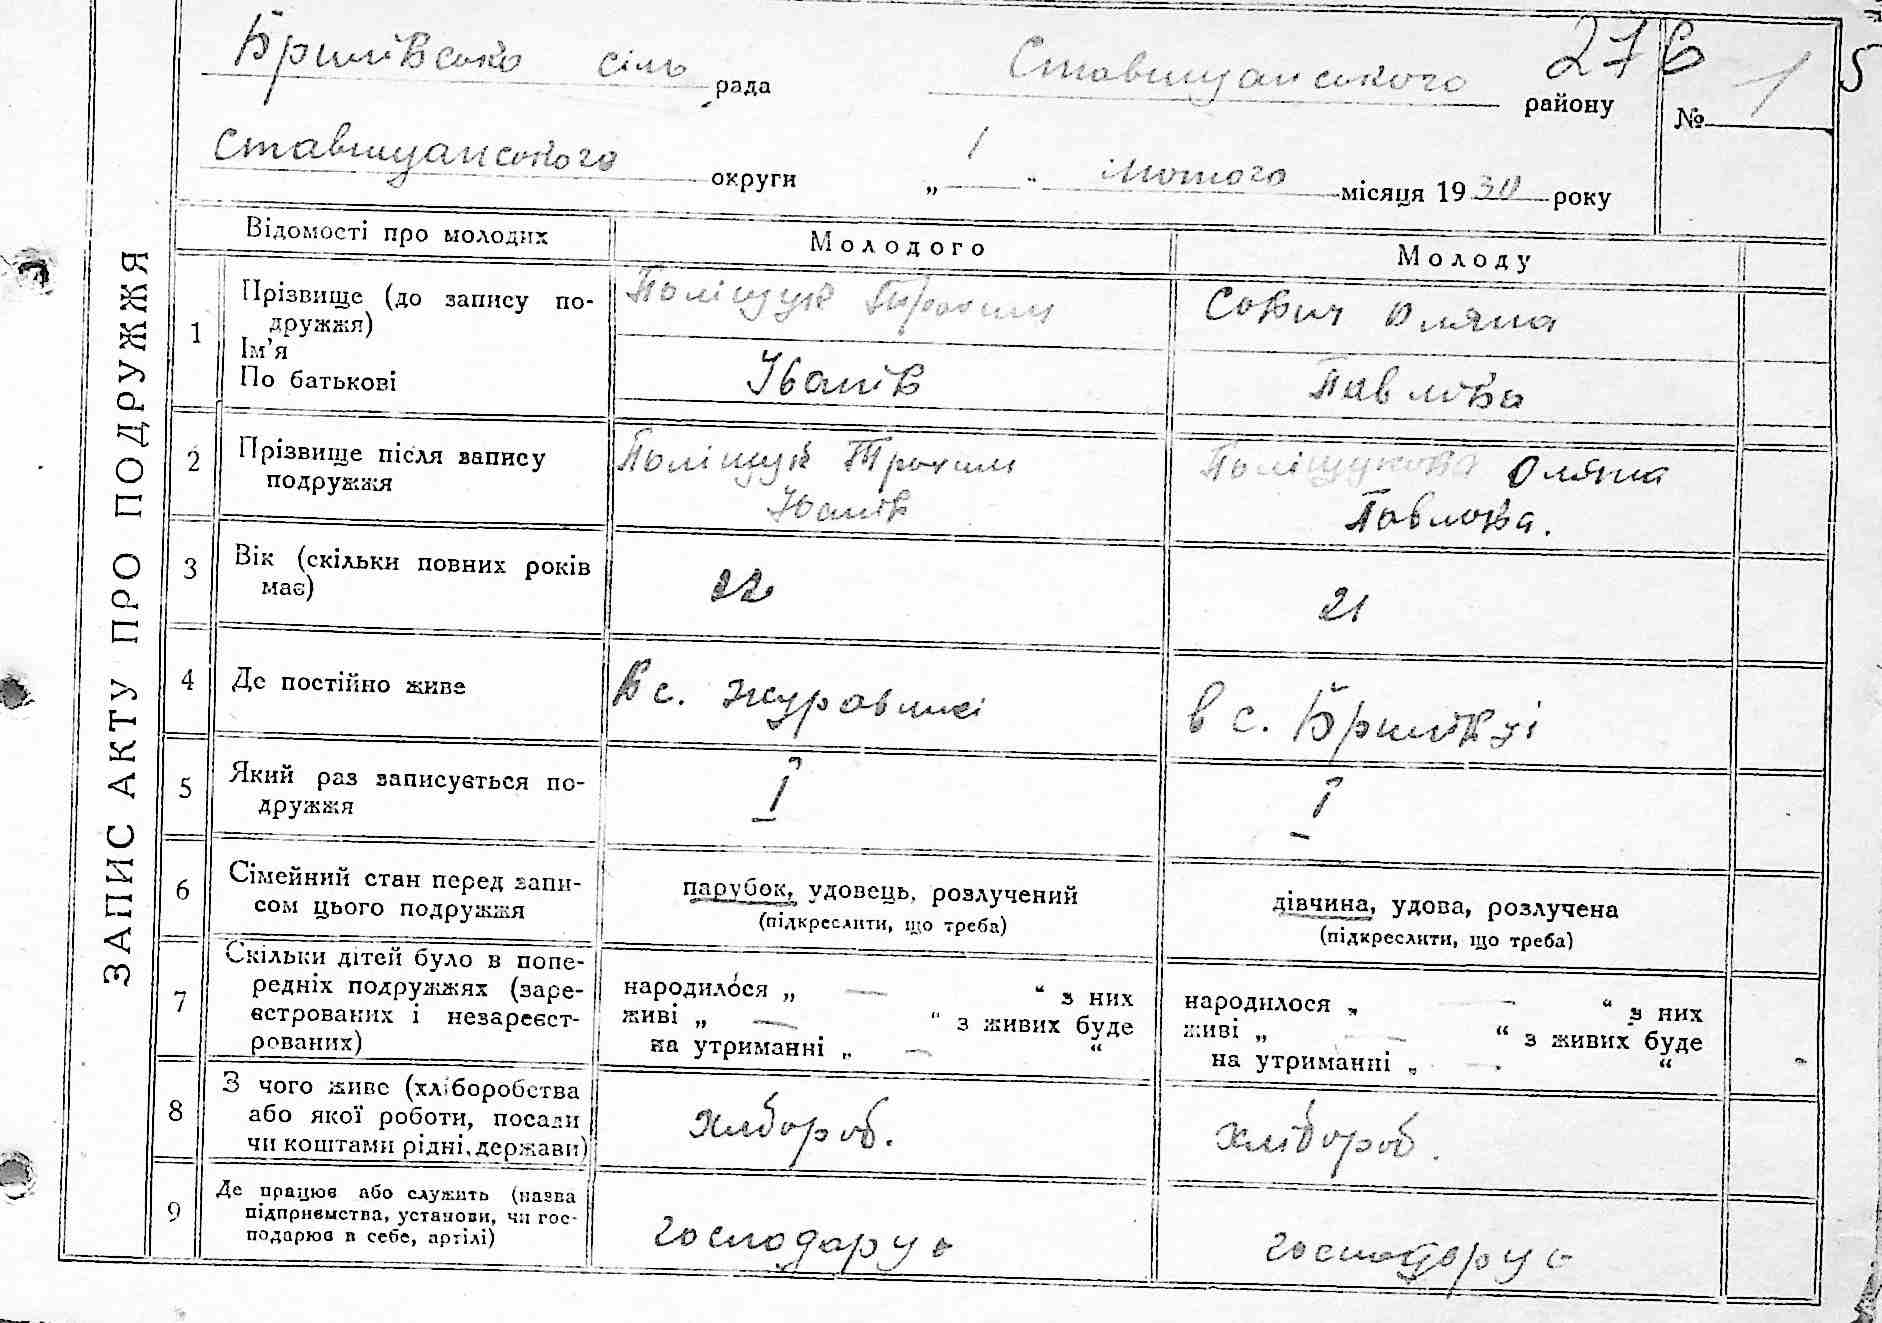 276
5
Бриківсько сіль рада
Ставищанського району
№ 1
Ставищанського округи
„ 1 “ лютого місяця 1930 року
ЗАПИС АКТУ ПРО ПОДРУЖЖЯ
Відомості про молодих
Молодого
Молоду
1
Прізвище (до запису по-
дружжя)
Ім’я
По батькові
Поліщук Трохим
Іванів
Сокич Оляна
Павлівна
2
Прізвище після запису
подружжя
Поліщук Трохим
Іванів
Поліщукова Оляна
Павловна.
3
Вік (скільки повних років
має)
22
21
4
Де постійно живе
В с. Журавлисі
в с. Бриківці
5
Який раз записується по-
дружжя
І
І
6
Сімейний стан перед запи-
сом цього подружжя
парубок, удовець, розлучений
(підкреслити, що треба)
дівчина, удова, розлучена
(підкреслити, що треба)
7
Скільки дітей було в попе-
редніх подружжях (заре-
єстрованих і незареєст-
рованих)
народилося „ — “ з них
живі „ — “ з живих буде
на утриманні „ — “
народилося „ — “ з них
живі „ — “ з живих буде
на утриманні „ — “
8
З чого живе (хліборобства
або якої роботи, посади
чи коштами рідні, держави)
хлібороб.
хлібороб.
9
Де працює або служить (назва
підприємства, установи, чи гос-
подарює в себе, артілі)
господарує
господарує